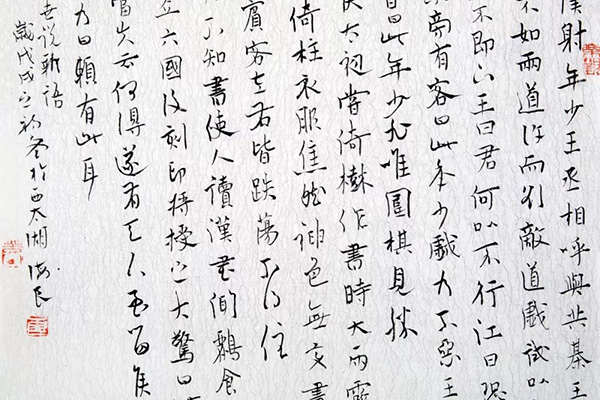 僕射年少王丞相呼與共棊王
不如兩道許而欲敵道戲試以
不即下王曰君何以不行江曰恐
旁有客曰此年少戲乃不惡王
曰此年少非唯圍棋見勝
侯太初嘗倚樹作書時大雨霹
倚柱衣服焦然神色無變書
賓客左右皆跌蕩不得住
不知書使人讀漢書聞酈食
立六國後刻印將授之大驚曰
當失云何得遂有天下至留侯
乃曰賴有此耳
世說新語
歲戊戌之初冬於西太湖海民